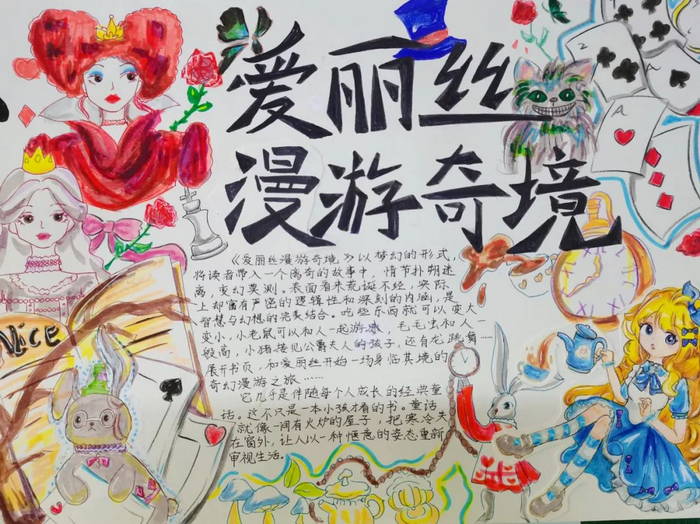 爱丽丝
漫游奇境
《爱丽丝漫游奇境》以梦幻的形式,
将读者带入一个离奇的故事中,情节扑朔迷
离,变幻莫测。表面看来荒诞不经,实际
上却富有严密的逻辑性和深刻的内涵,是
智慧与幻想的完美结合。吃些东西就可以变大
变小,小老鼠可以和人一起游泳,毛毛虫和人一
般高,小猪是公爵夫人的孩子,还有龙虾舞……
展开书页,和爱丽丝开始一场身临其境的
奇幻漫游之旅……
它几乎是伴随每个人成长的经典童
话。这不只是一本小孩才看的书。童话
就像一间有火炉的屋子,把寒冷关
在窗外,让人以一种惬意的姿态重新
审视生活。
ALICE
2
A
A